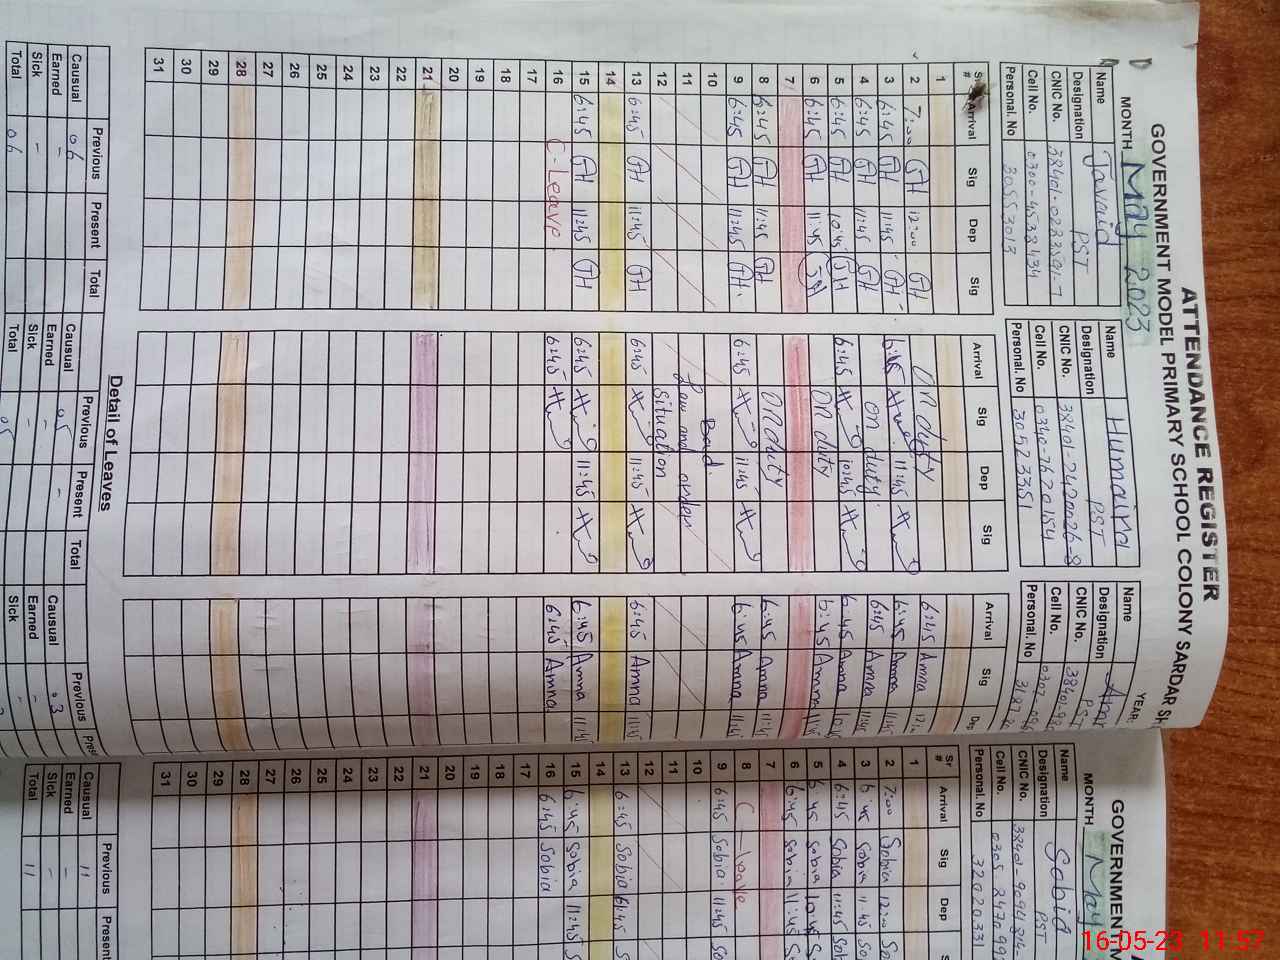 ATTENDANCE REGISTER
GOVERNMENT MODEL PRIMARY SCHOOL COLONY SARDAR
MONTH May 2023 YEAR:
Name Javaid
Designation PST
CNIC No.
Cell No. 0300-4538434
Personal. No 30553013
Name Humaira
Designation PST
CNIC No. 38401-2420026-8
Cell No. 0340-7620154
Personal. No 30523351
Name
Designation PST
CNIC No.
Cell No.
Personal. No
Sr # Arrival Sig Dep Sig Arrival Sig Dep Sig Arrival Sig
1
2 7:00 12:00 On duty 6:45 Amna
3 6:45 11:45 6:45 11:45 6:45 Amna 11:45
4 6:45 11:45 on duty 6:45 Amna 11:45
5 6:45 10:45 6:45 10:45 6:45 Amna
6 6:45 11:45 On duty 6:45 Amna
7
8 6:45 11:45 On duty 6:45 Amna 11:45
9 6:45 11:45 6:45 11:45 6:45 Amna 11:45
10 Bad
11 Law and order
12 Situation
13 6:45 11:45 6:45 11:45 6:45 Amna 11:45
14
15 6:45 11:45 6:45 11:45 6:45 Amna 11:45
16 C-Leave 6:45 6:45 Amna
17
18
19
20
21
22
23
24
25
26
27
28
29
30
31
Detail of Leaves
Previous Present Total Previous Present Total Previous
Causual 06 Causual 05 Causual 03
Earned - Earned - Earned -
Sick - Sick - Sick -
Total 06 Total 05
GOVERNMENT
MONTH May
Name Sobia
Designation PST
CNIC No.
Cell No.
Personal. No 32020331
Sr # Arrival Sig Dep
1
2 7:00 Sobia 12:00
3 6:45 Sobia 11:45
4 6:45 Sobia 11:45
5 6:45 Sobia 10:45
6 6:45 Sobia 11:45
7
8 C-leave
9 6:45 Sobia 11:45
10
11
12
13 6:45 Sobia
14
15 6:45 Sobia 11:45
16 6:45 Sobia
17
18
19
20
21
22
23
24
25
26
27
28
29
30
31
Previous Present
Causual 11
Earned -
Sick -
Total 11
16-05-23 11:57